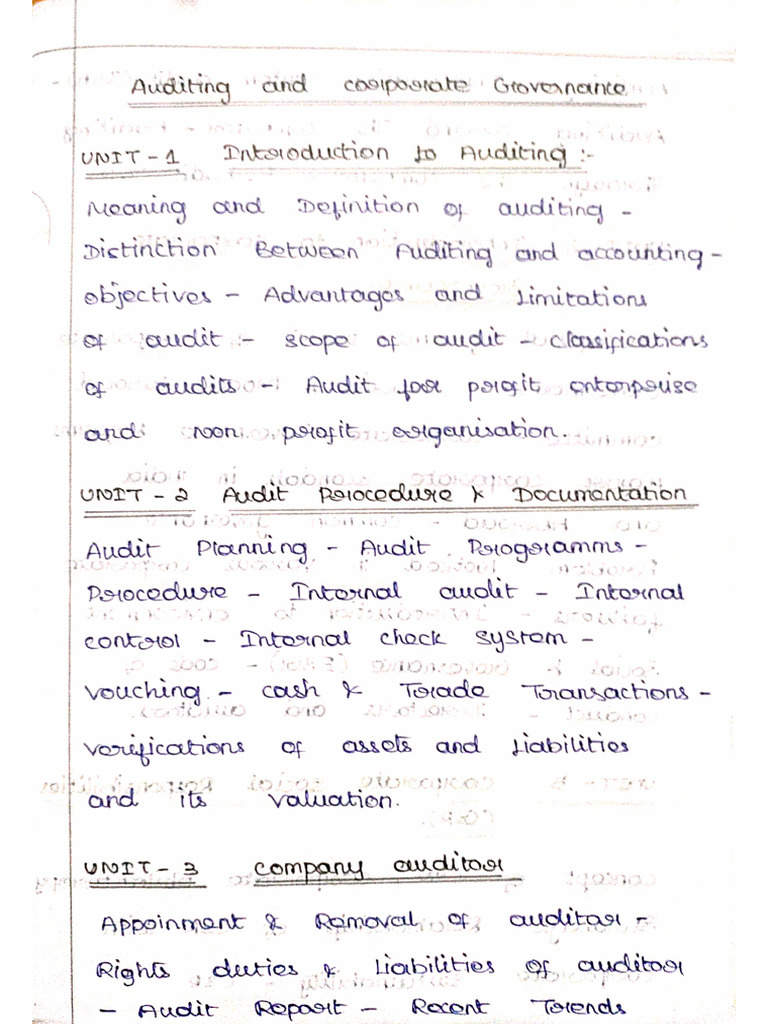 Auditing and corporate Governance
UNIT - 1 Introduction to Auditing :-
Meaning and Definition of auditing -
Distinction Between Auditing and accounting -
objectives - Advantages and Limitations
of audit :- scope of audit - classifications
of audits - Audit for profit enterprise
and non profit organisation.
UNIT - 2 Audit Procedure & Documentation
Audit Planning - Audit Programms -
Procedure - Internal audit - Internal
control - Internal check system -
vouching - cash & Trade Transactions -
verifications of assets and Liabilities
and its valuation.
UNIT - 3 company auditor
Appoinment & Removal of auditor -
Rights duties & Liabilities of auditor
- Audit Report - Recent Trends